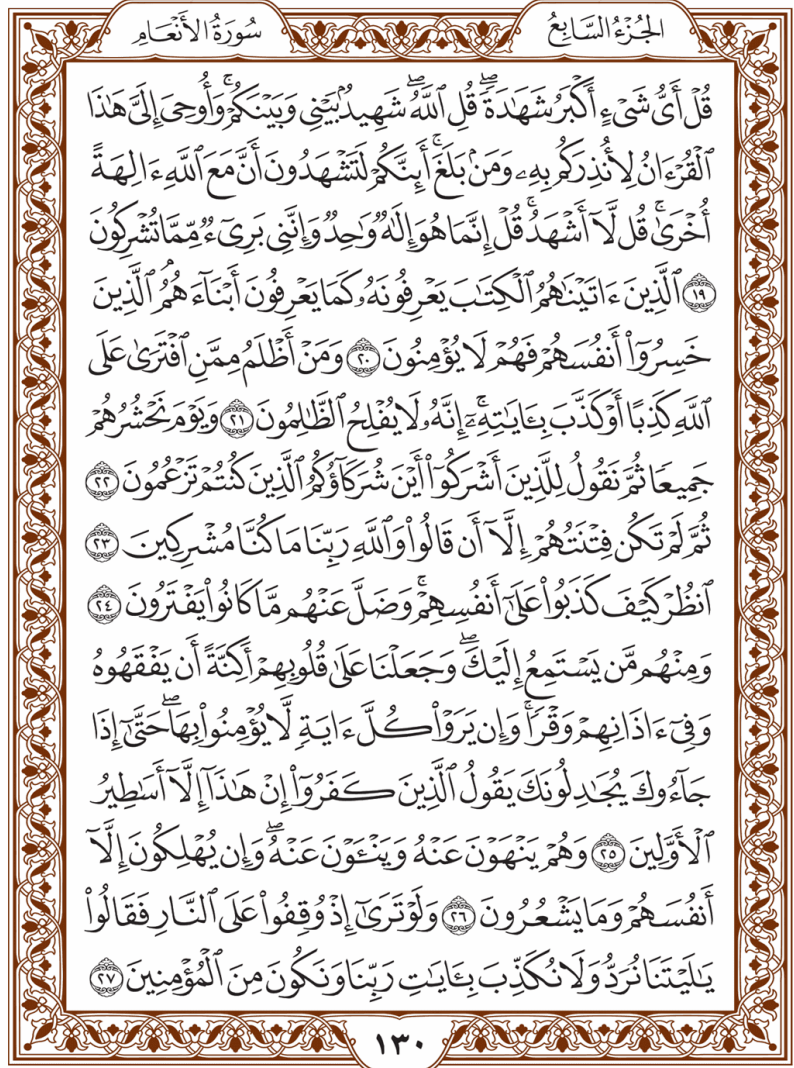 الجُزْءُ السَّابِعُ
سُورَةُ الأَنْعَامِ
قُلْ أَىُّ شَىْءٍ أَكْبَرُ شَهَـٰدَةً ۖ قُلِ ٱللَّهُ ۖ شَهِيدٌۢ بَيْنِى وَبَيْنَكُمْ ۚ وَأُوحِىَ إِلَىَّ هَـٰذَا
ٱلْقُرْءَانُ لِأُنذِرَكُم بِهِۦ وَمَنۢ بَلَغَ ۚ أَئِنَّكُمْ لَتَشْهَدُونَ أَنَّ مَعَ ٱللَّهِ ءَالِهَةً
أُخْرَىٰ ۚ قُل لَّآ أَشْهَدُ ۚ قُلْ إِنَّمَا هُوَ إِلَـٰهٌ وَٰحِدٌ وَإِنَّنِى بَرِىٓءٌ مِّمَّا تُشْرِكُونَ
١٩ ٱلَّذِينَ ءَاتَيْنَـٰهُمُ ٱلْكِتَـٰبَ يَعْرِفُونَهُۥ كَمَا يَعْرِفُونَ أَبْنَآءَهُمُ ۘ ٱلَّذِينَ
خَسِرُوٓا۟ أَنفُسَهُمْ فَهُمْ لَا يُؤْمِنُونَ ٢٠ وَمَنْ أَظْلَمُ مِمَّنِ ٱفْتَرَىٰ عَلَى
ٱللَّهِ كَذِبًا أَوْ كَذَّبَ بِـَٔايَـٰتِهِۦٓ ۗ إِنَّهُۥ لَا يُفْلِحُ ٱلظَّـٰلِمُونَ ٢١ وَيَوْمَ نَحْشُرُهُمْ
جَمِيعًا ثُمَّ نَقُولُ لِلَّذِينَ أَشْرَكُوٓا۟ أَيْنَ شُرَكَآؤُكُمُ ٱلَّذِينَ كُنتُمْ تَزْعُمُونَ ٢٢
ثُمَّ لَمْ تَكُن فِتْنَتُهُمْ إِلَّآ أَن قَالُوا۟ وَٱللَّهِ رَبِّنَا مَا كُنَّا مُشْرِكِينَ ٢٣
ٱنظُرْ كَيْفَ كَذَبُوا۟ عَلَىٰٓ أَنفُسِهِمْ ۚ وَضَلَّ عَنْهُم مَّا كَانُوا۟ يَفْتَرُونَ ٢٤
وَمِنْهُم مَّن يَسْتَمِعُ إِلَيْكَ ۖ وَجَعَلْنَا عَلَىٰ قُلُوبِهِمْ أَكِنَّةً أَن يَفْقَهُوهُ
وَفِىٓ ءَاذَانِهِمْ وَقْرًا ۚ وَإِن يَرَوْا۟ كُلَّ ءَايَةٍ لَّا يُؤْمِنُوا۟ بِهَا ۖ حَتَّىٰٓ إِذَا
جَآءُوكَ يُجَـٰدِلُونَكَ يَقُولُ ٱلَّذِينَ كَفَرُوٓا۟ إِنْ هَـٰذَآ إِلَّآ أَسَـٰطِيرُ
ٱلْأَوَّلِينَ ٢٥ وَهُمْ يَنْهَوْنَ عَنْهُ وَيَنْـَٔوْنَ عَنْهُ ۖ وَإِن يُهْلِكُونَ إِلَّآ
أَنفُسَهُمْ وَمَا يَشْعُرُونَ ٢٦ وَلَوْ تَرَىٰٓ إِذْ وُقِفُوا۟ عَلَى ٱلنَّارِ فَقَالُوا۟
يَـٰلَيْتَنَا نُرَدُّ وَلَا نُكَذِّبَ بِـَٔايَـٰتِ رَبِّنَا وَنَكُونَ مِنَ ٱلْمُؤْمِنِينَ ٢٧
١٣٠